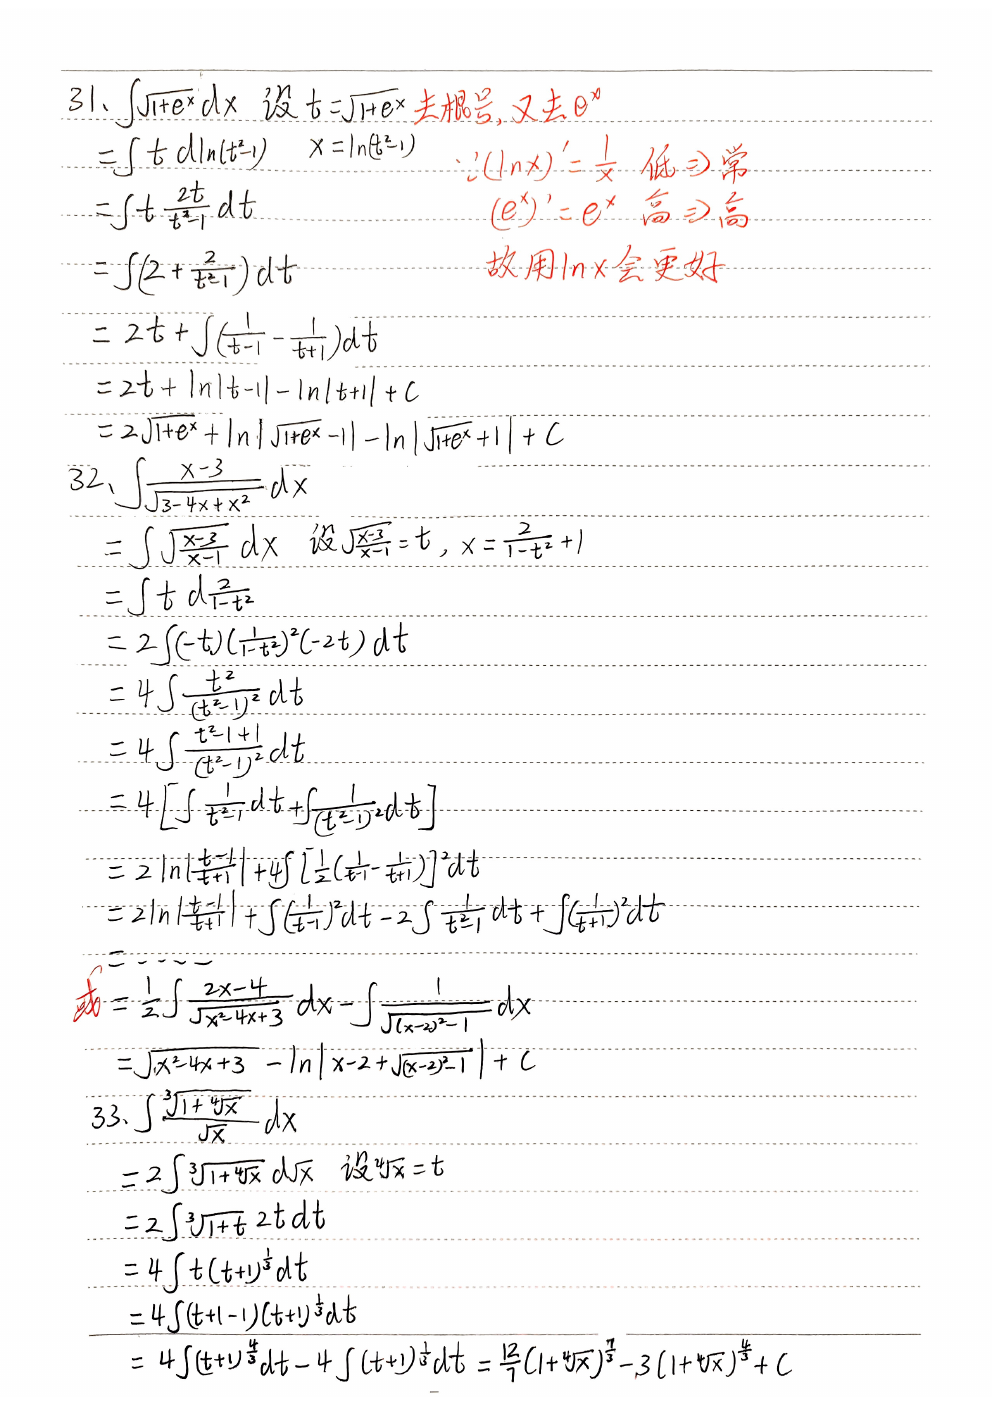 31、∫√(1+eˣ) dx 设 t=√(1+eˣ) 去根号,又去eˣ
=∫ t d ln(t²-1) x=ln(t²-1) ∵(lnx)'=1/x 低⇒常
=∫ t 2t/(t²-1) dt (eˣ)'=eˣ 高⇒高
=∫(2+2/(t²-1))dt 故用lnx会更好
=2t+∫(1/(t-1)-1/(t+1))dt
=2t+ln|t-1|-ln|t+1|+C
=2√(1+eˣ)+ln|√(1+eˣ)-1|-ln|√(1+eˣ)+1|+C
32、∫(x-3)/√(3-4x+x²) dx
=∫√((x-3)/(x-1)) dx 设√((x-3)/(x-1))=t, x=2/(1-t²)+1
=∫ t d 2/(1-t²)
=2∫(-t)(1/(1-t²))²(-2t) dt
=4∫ t²/(t²-1)² dt
=4∫ (t²-1+1)/(t²-1)² dt
=4[∫ 1/(t²-1) dt+∫1/(t²-1)² dt]
=2 ln|(t-1)/(t+1)|+4∫[½(1/(t-1)-1/(t+1))]²dt
=2ln|(t-1)/(t+1)|+∫(1/(t-1))²dt-2∫ 1/(t²-1) dt+∫(1/(t+1))²dt
=----
或 =½∫(2x-4)/√(x²-4x+3) dx-∫1/√((x-2)²-1) dx
=√(x²-4x+3) -ln|x-2+√((x-2)²-1)|+C
33、∫ ∛(1+∜x)/√x dx
=2∫∛(1+∜x) d√x 设∜x=t
=2∫∛(1+t) 2tdt
=4∫t(t+1)^(1/3)dt
=4∫(t+1-1)(t+1)^(1/3)dt
=4∫(t+1)^(4/3)dt-4∫(t+1)^(1/3)dt=12/7(1+∜x)^(7/3)-3(1+∜x)^(4/3)+C